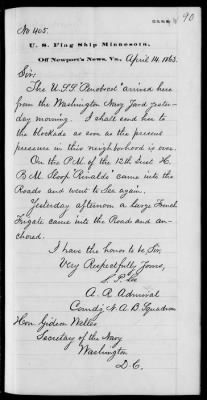 90
No 405.
U. S. Flag Ship Minnesota,
Off Newport's News, Va., April 14. 1863.
Sir:
The U.S.S. "Penobscot" arrived here
from the Washington Navy Yard yester-
day morning. I shall send her to
the blockade as soon as the present
pressure in this neighborhood is over.
On the P.M. of the 12th Inst. H.
B. M. Sloop "Rinaldo" came into the
Roads and went to Sea again.
Yesterday afternoon a large French
Frigate came into the Roads and an-
chored.
I have the honor to be, Sir,
Very Respectfully Yours,
S. P. Lee
A. R. Admiral
Comd'g N. A. B. Squadron
Hon. Gideon Welles
Secretary of the Navy
Washington
D. C.